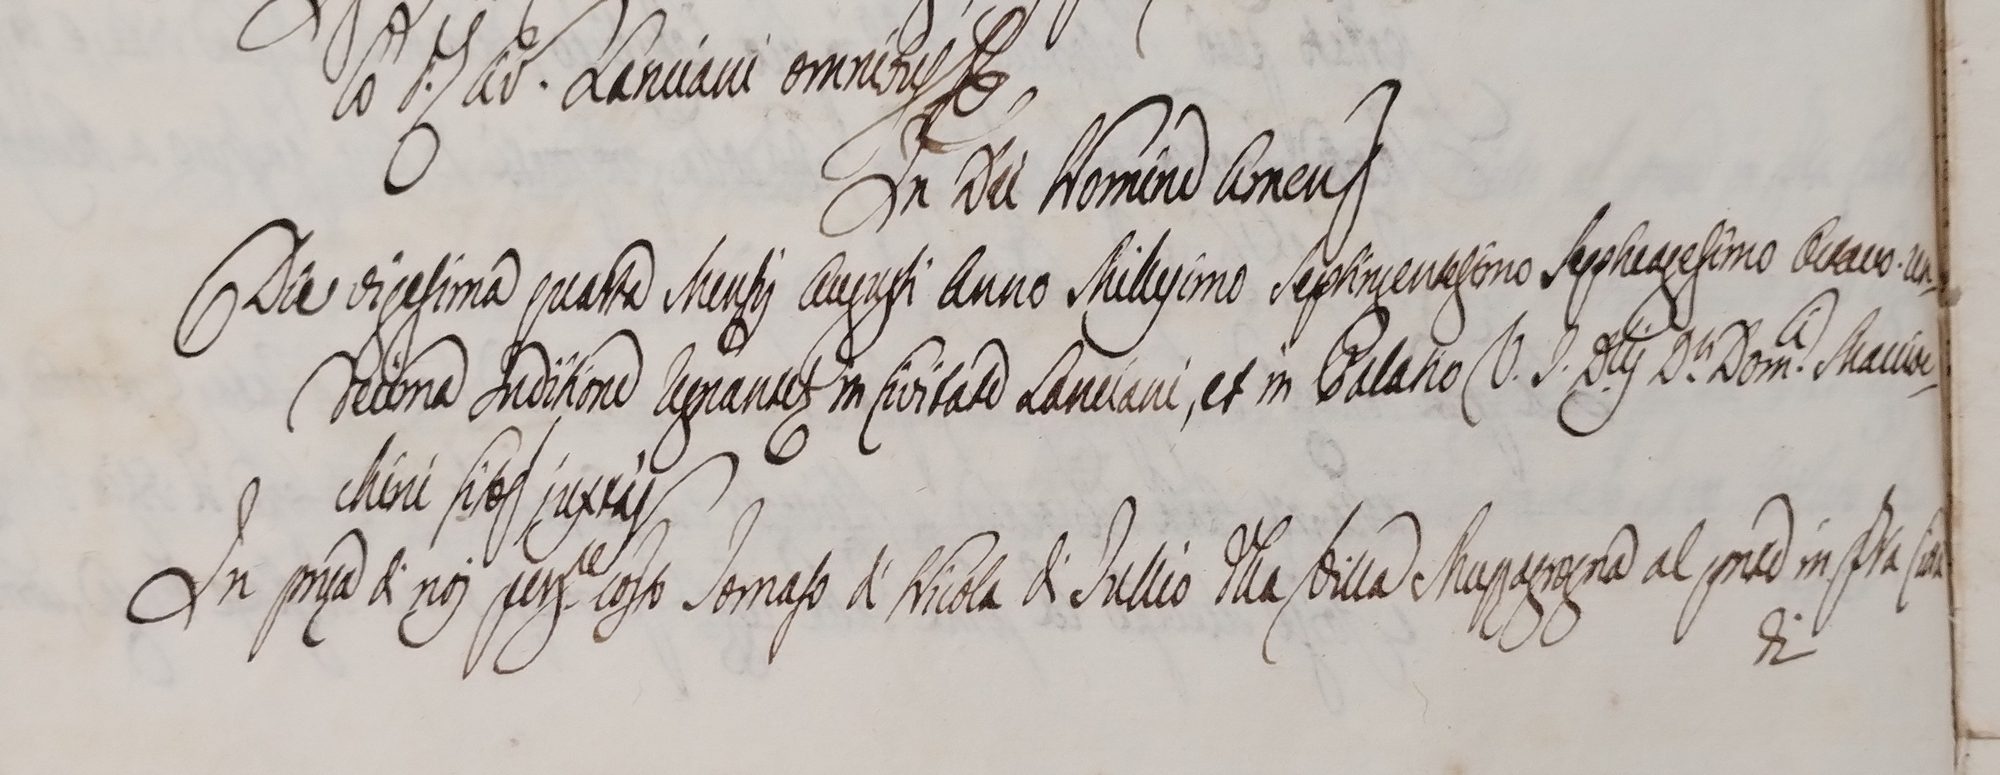 Lanciani omnibus
In Dei Nomine Amen
Die vigesima quarta Mensis Augusti Anno Millesimo Septingentesimo Septuagesimo Octavo. un-
decima Inditione Regnante in Civitate Lanciani, et in Palatio U. J. D.ris D.ni Dom.ci Maccioc-
chini sitos juxta
In pnza di noi per.te costo Tomaso di Nicola di Tullio della Villa Mozzagrogna al pnte in q.ta
di